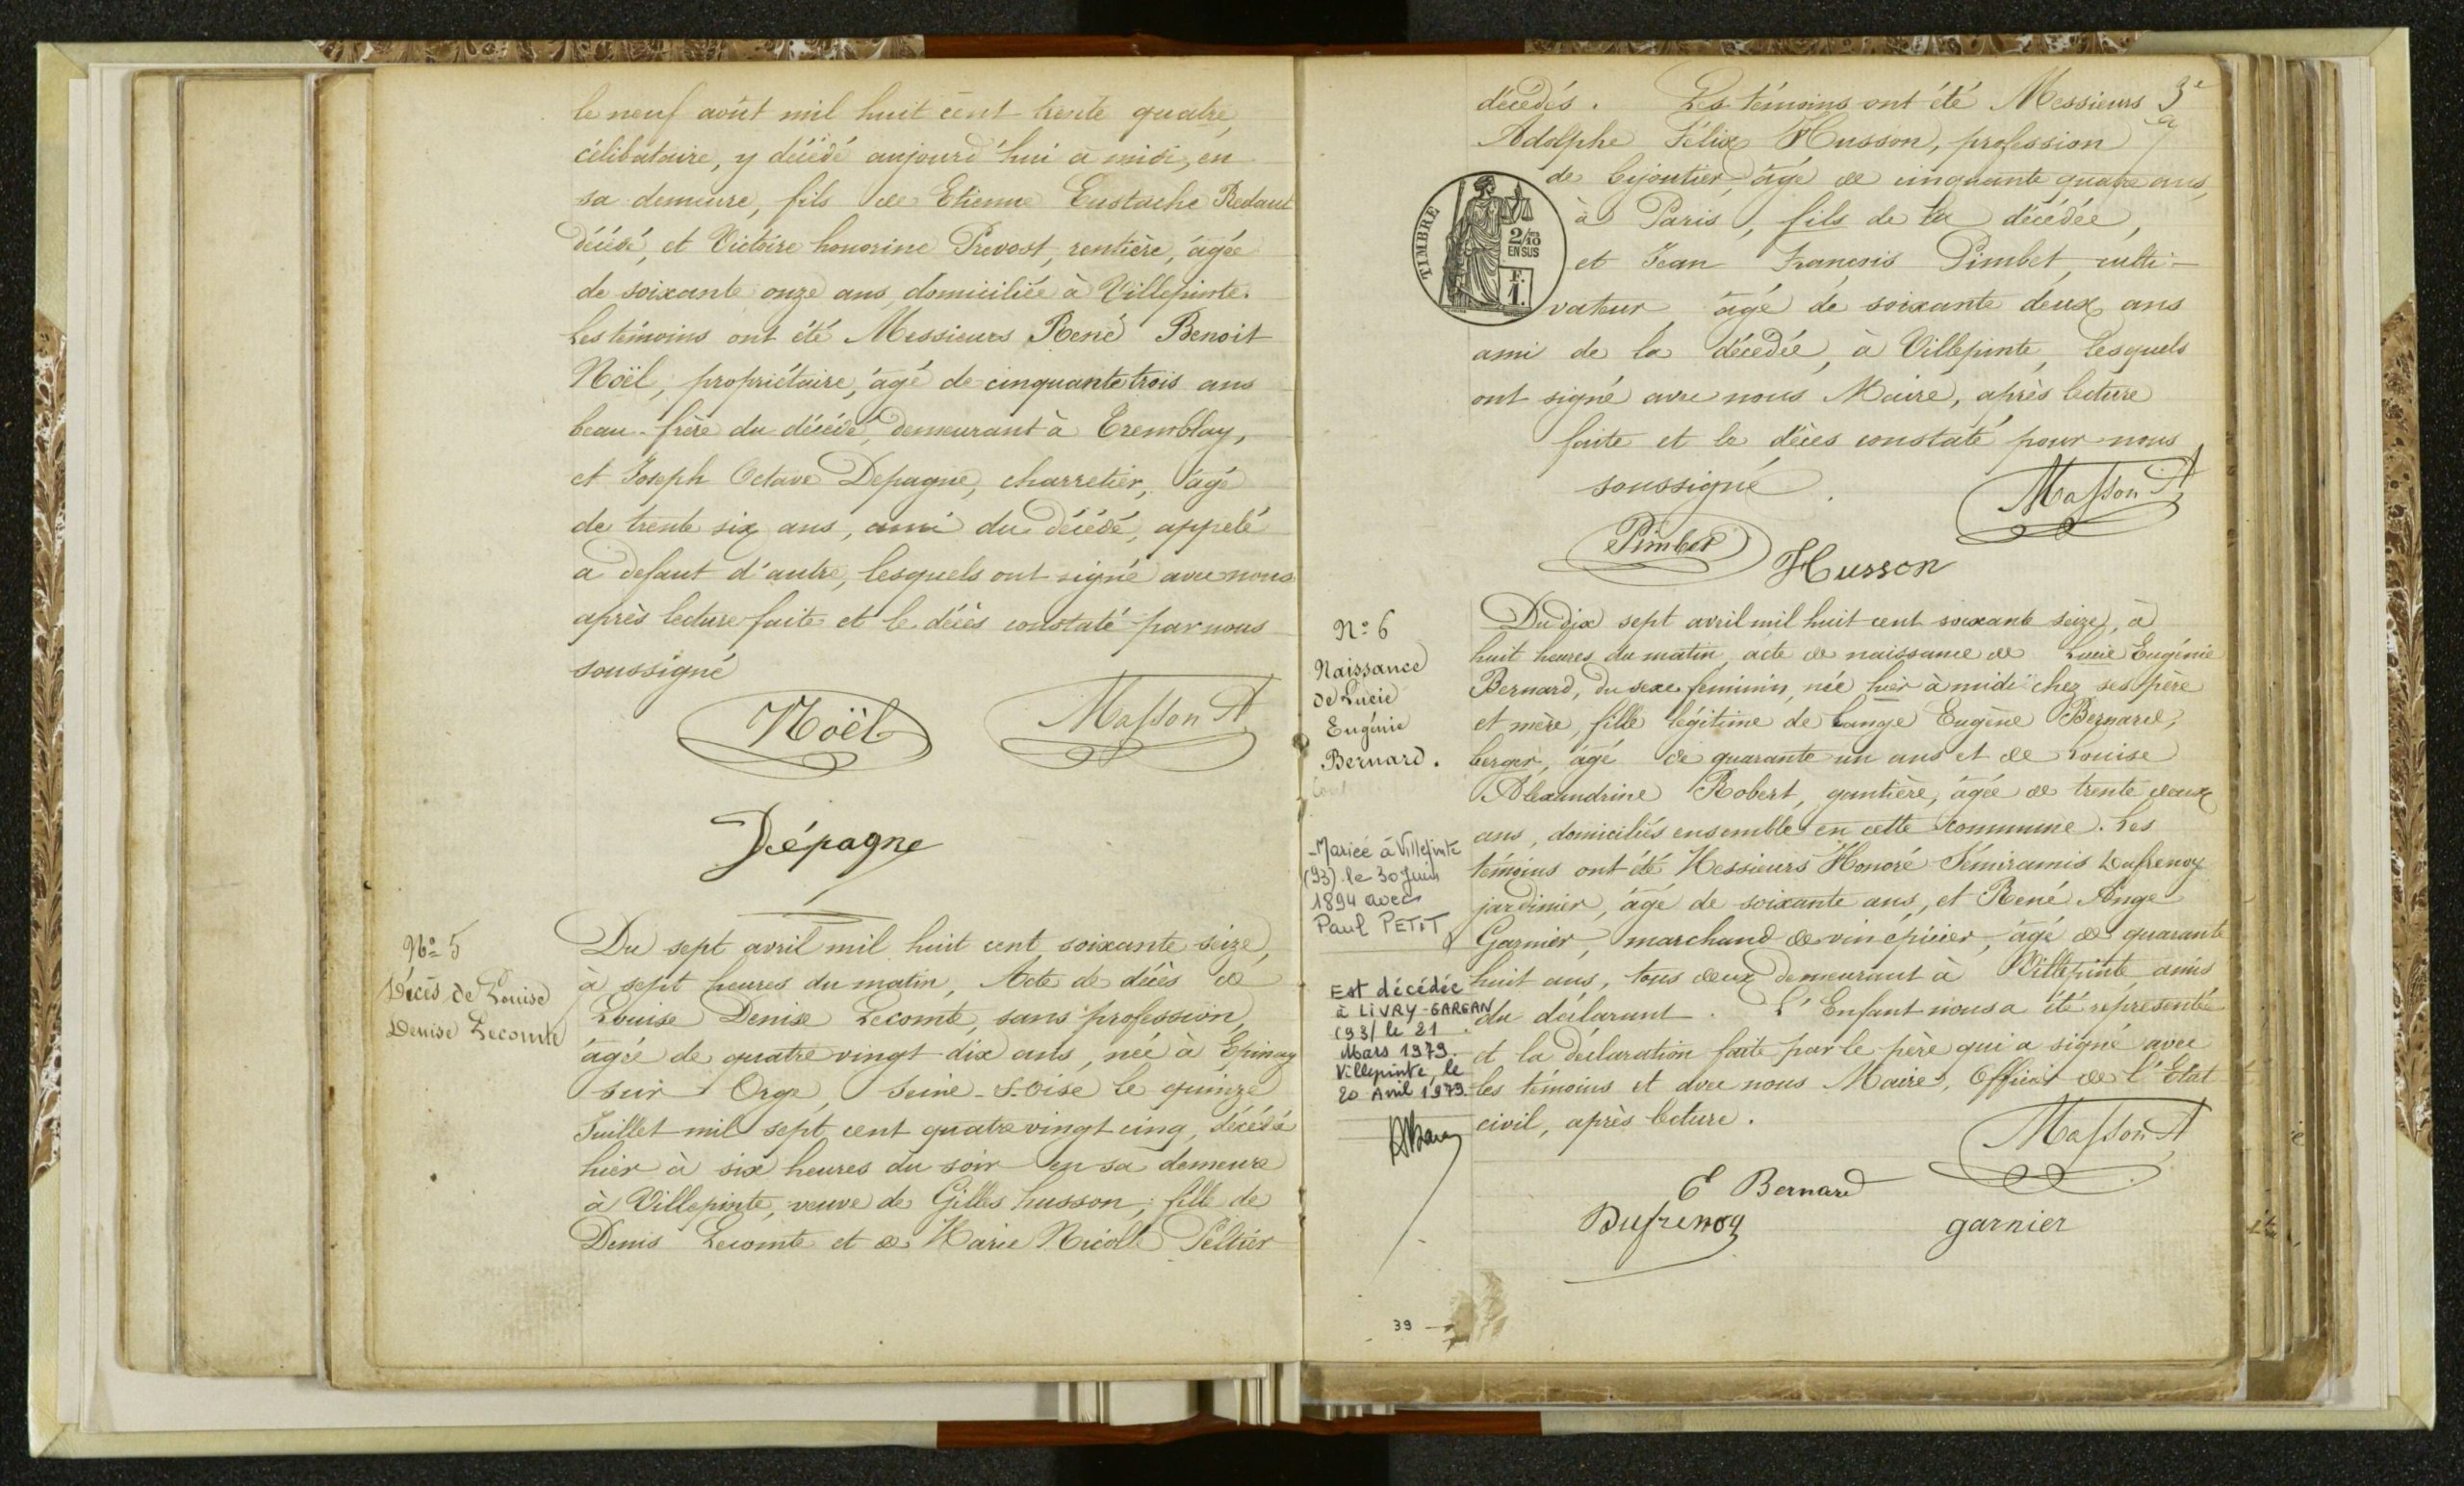 le neuf août mil huit cent trente quatre,
célibataire, y décédé aujourd'hui à midi, en
sa demeure, fils de Etienne Eustache Redaut
décédé, et Victoire honorine Prevost, rentière, âgée
de soixante onze ans, domiciliée à Villepinte.
Les témoins ont été Messieurs René Benoit
Noël, propriétaire, âgé de cinquante trois ans
beau-frère du décédé, demeurant à Tremblay,
et Joseph Octave Depagne, charretier, âgé
de trente six ans, ami du décédé, appelé
a defaut d'autre, lesquels ont signé avec nous
après lecture faite et le décès constaté par nous
soussigné
Noël
Masson A
Dépagne
N° 5
Décès de Louise
Denise Lecomte
Du sept avril mil huit cent soixante seize,
à sept heures du matin, Acte de décès de
Louise Denise Lecomte, sans profession,
âgée de quatre vingt dix ans, née à Epinay
sur Orge, Seine-&-Oise le quinze
Juillet mil sept cent quatre vingt cinq, décédée
hier à six heures du soir en sa demeure
à Villepinte, veuve de Gilles husson, fille de
Denis Lecomte et de Marie Nicolle Peltier
décédés. Les témoins ont été Messieurs
3e
Adolphe Félix Husson, profession
de bijoutier, âgé de cinquante quatre ans,
à Paris, fils de la décédée,
et Jean François Pimbet, culti-
vateur, âgé de soixante deux ans
ami de la décédée, à Villepinte, Lesquels
ont signé avec nous Maire, après lecture
faite et le décès constaté pour nous
soussigné.
TIMBRE
2/10
EN SUS
F.
1.
Masson A
Pimbet
Husson
N° 6
Naissance
de Lucie
Eugénie
Bernard.
Du dix sept avril mil huit cent soixante seize, à
huit heures du matin, acte de naissance de Lucie Eugénie
Bernard, du sexe feminin, née hier à midi chez ses père
et mère, fille légitime de Lange Eugène Bernard,
berger, âgé de quarante un ans et de Louise
Alexandrine Robert, gantière, âgée de trente deux
ans, domiciliés ensemble en cette commune. Les
témoins ont été Messieurs Honoré Sémiramis Dufrenoy
jardinier, âgé de soixante ans, et René Ange
Garnier, marchand de vin épicier, âgé de quarante
huit ans, tous deux demeurant à Villepinte, amis
du déclarant. L'Enfant nous a été représentée
et la déclaration faite par le père qui a signé avec
les témoins et avec nous Maire, Officier de l'Etat
civil, après lecture.
-Mariée à Villepinte
(93) le 30 Juin
1894 avec
Paul PETIT
Est décédée
à LIVRY-GARGAN
(93) le 21
Mars 1979.
Villepinte, le
20 Avril 1979.
Masson A
E Bernard
Dufrenoy
garnier
39